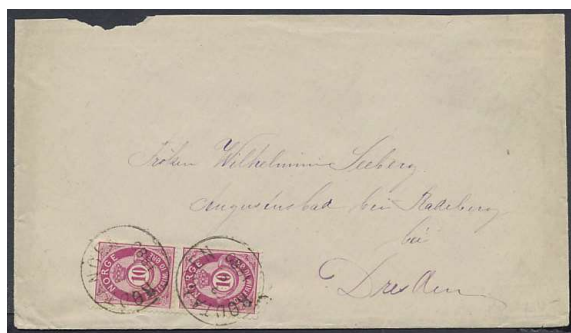 Fröken Wilhelmine Seeberg.
Augustusbad bei Radeberg
bei
Dresden
NORGE 10 NORGE 10